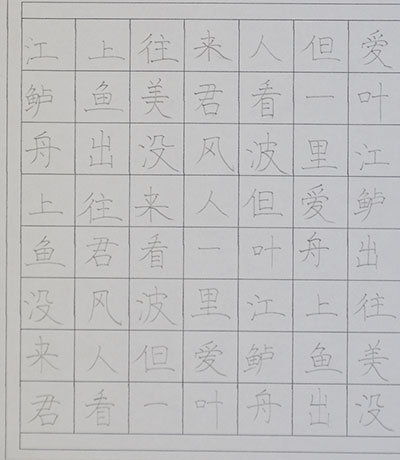 江上往来人但爱
鲈鱼美君看一叶
舟出没风波里江
上往来人但爱鲈
鱼君看一叶舟出
没风波里江上往
来人但爱鲈鱼美
君看一叶舟出没